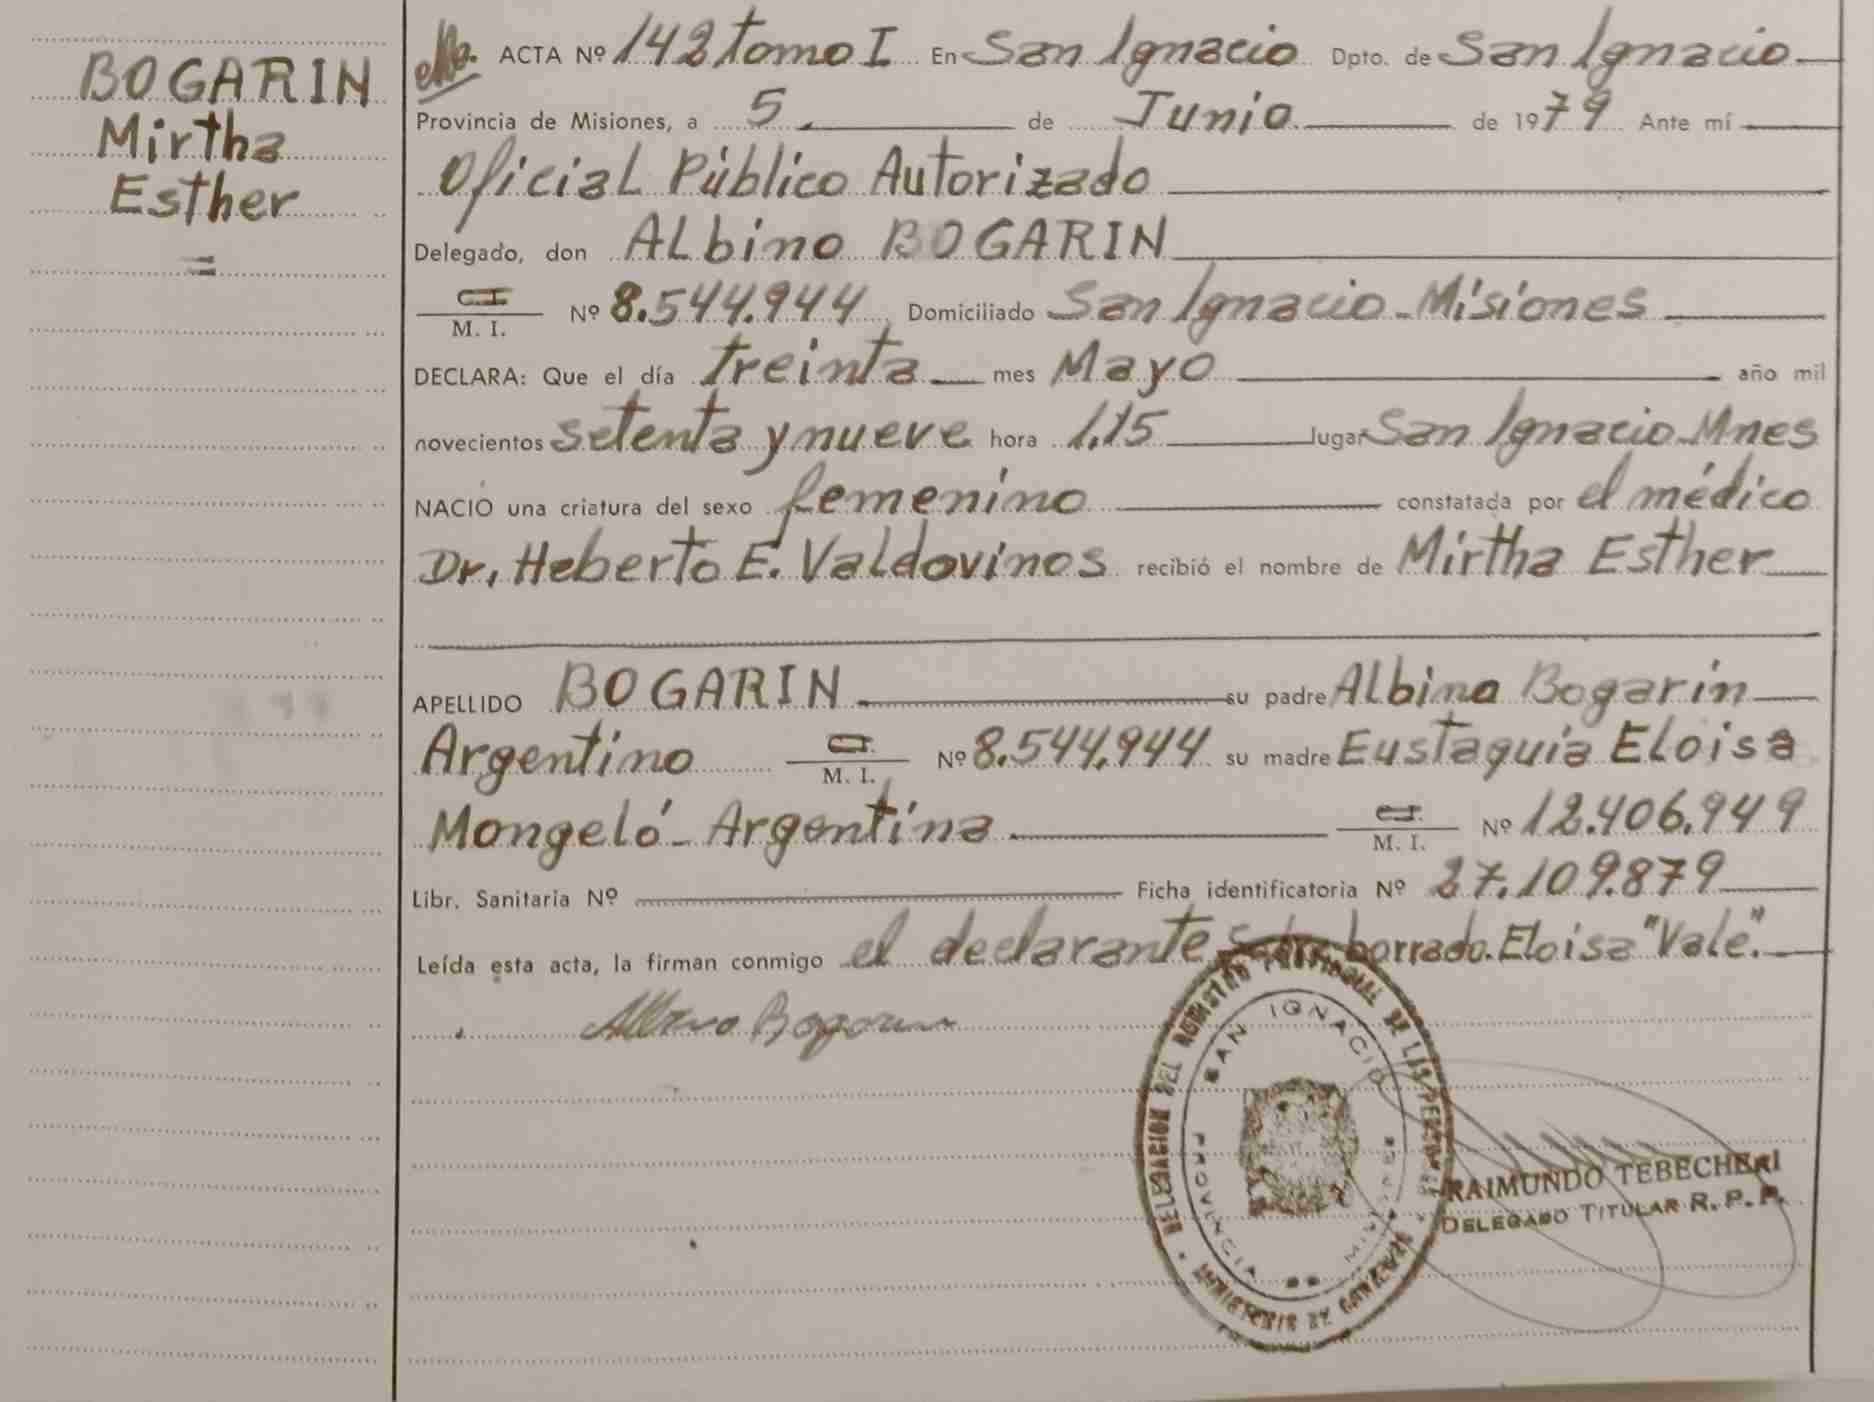 BOGARIN
Mirtha
Esther
=
ACTA Nº 142 tomo I En San Ignacio Dpto. de San Ignacio
Provincia de Misiones, a 5 de Junio de 1979 Ante mí
Oficial Público Autorizado
Delegado, don ALbino BOGARIN
C.I. M. I. Nº 8.544.944 Domiciliado San Ignacio - Misiones
DECLARA: Que el día treinta mes Mayo año mil
novecientos setenta y nueve hora 1.15 lugar San Ignacio Mnes
NACIO una criatura del sexo femenino constatada por el médico
Dr. Heberto E. Valdovinos recibió el nombre de Mirtha Esther
APELLIDO BOGARIN su padre Albino Bogarín
Argentino C.I. M. I. Nº 8.544.944 su madre Eustaquia ELoisa
Mongeló - Argentina C.I. M. I. Nº 12.406.949
Libr. Sanitaria Nº Ficha identificatoria Nº 27.109.879
Leída esta acta, la firman conmigo el declarante, sobre borrado. Eloisa "Vale".
Albino Bogarin
DELEGACION DEL REGISTRO PROVINCIAL DE LAS PERSONAS
SAN IGNACIO
PROVINCIA DE MISIONES
MINISTERIO DE GOBIERNO
RAIMUNDO TEBECHERI
DELEGADO TITULAR R. P. P.